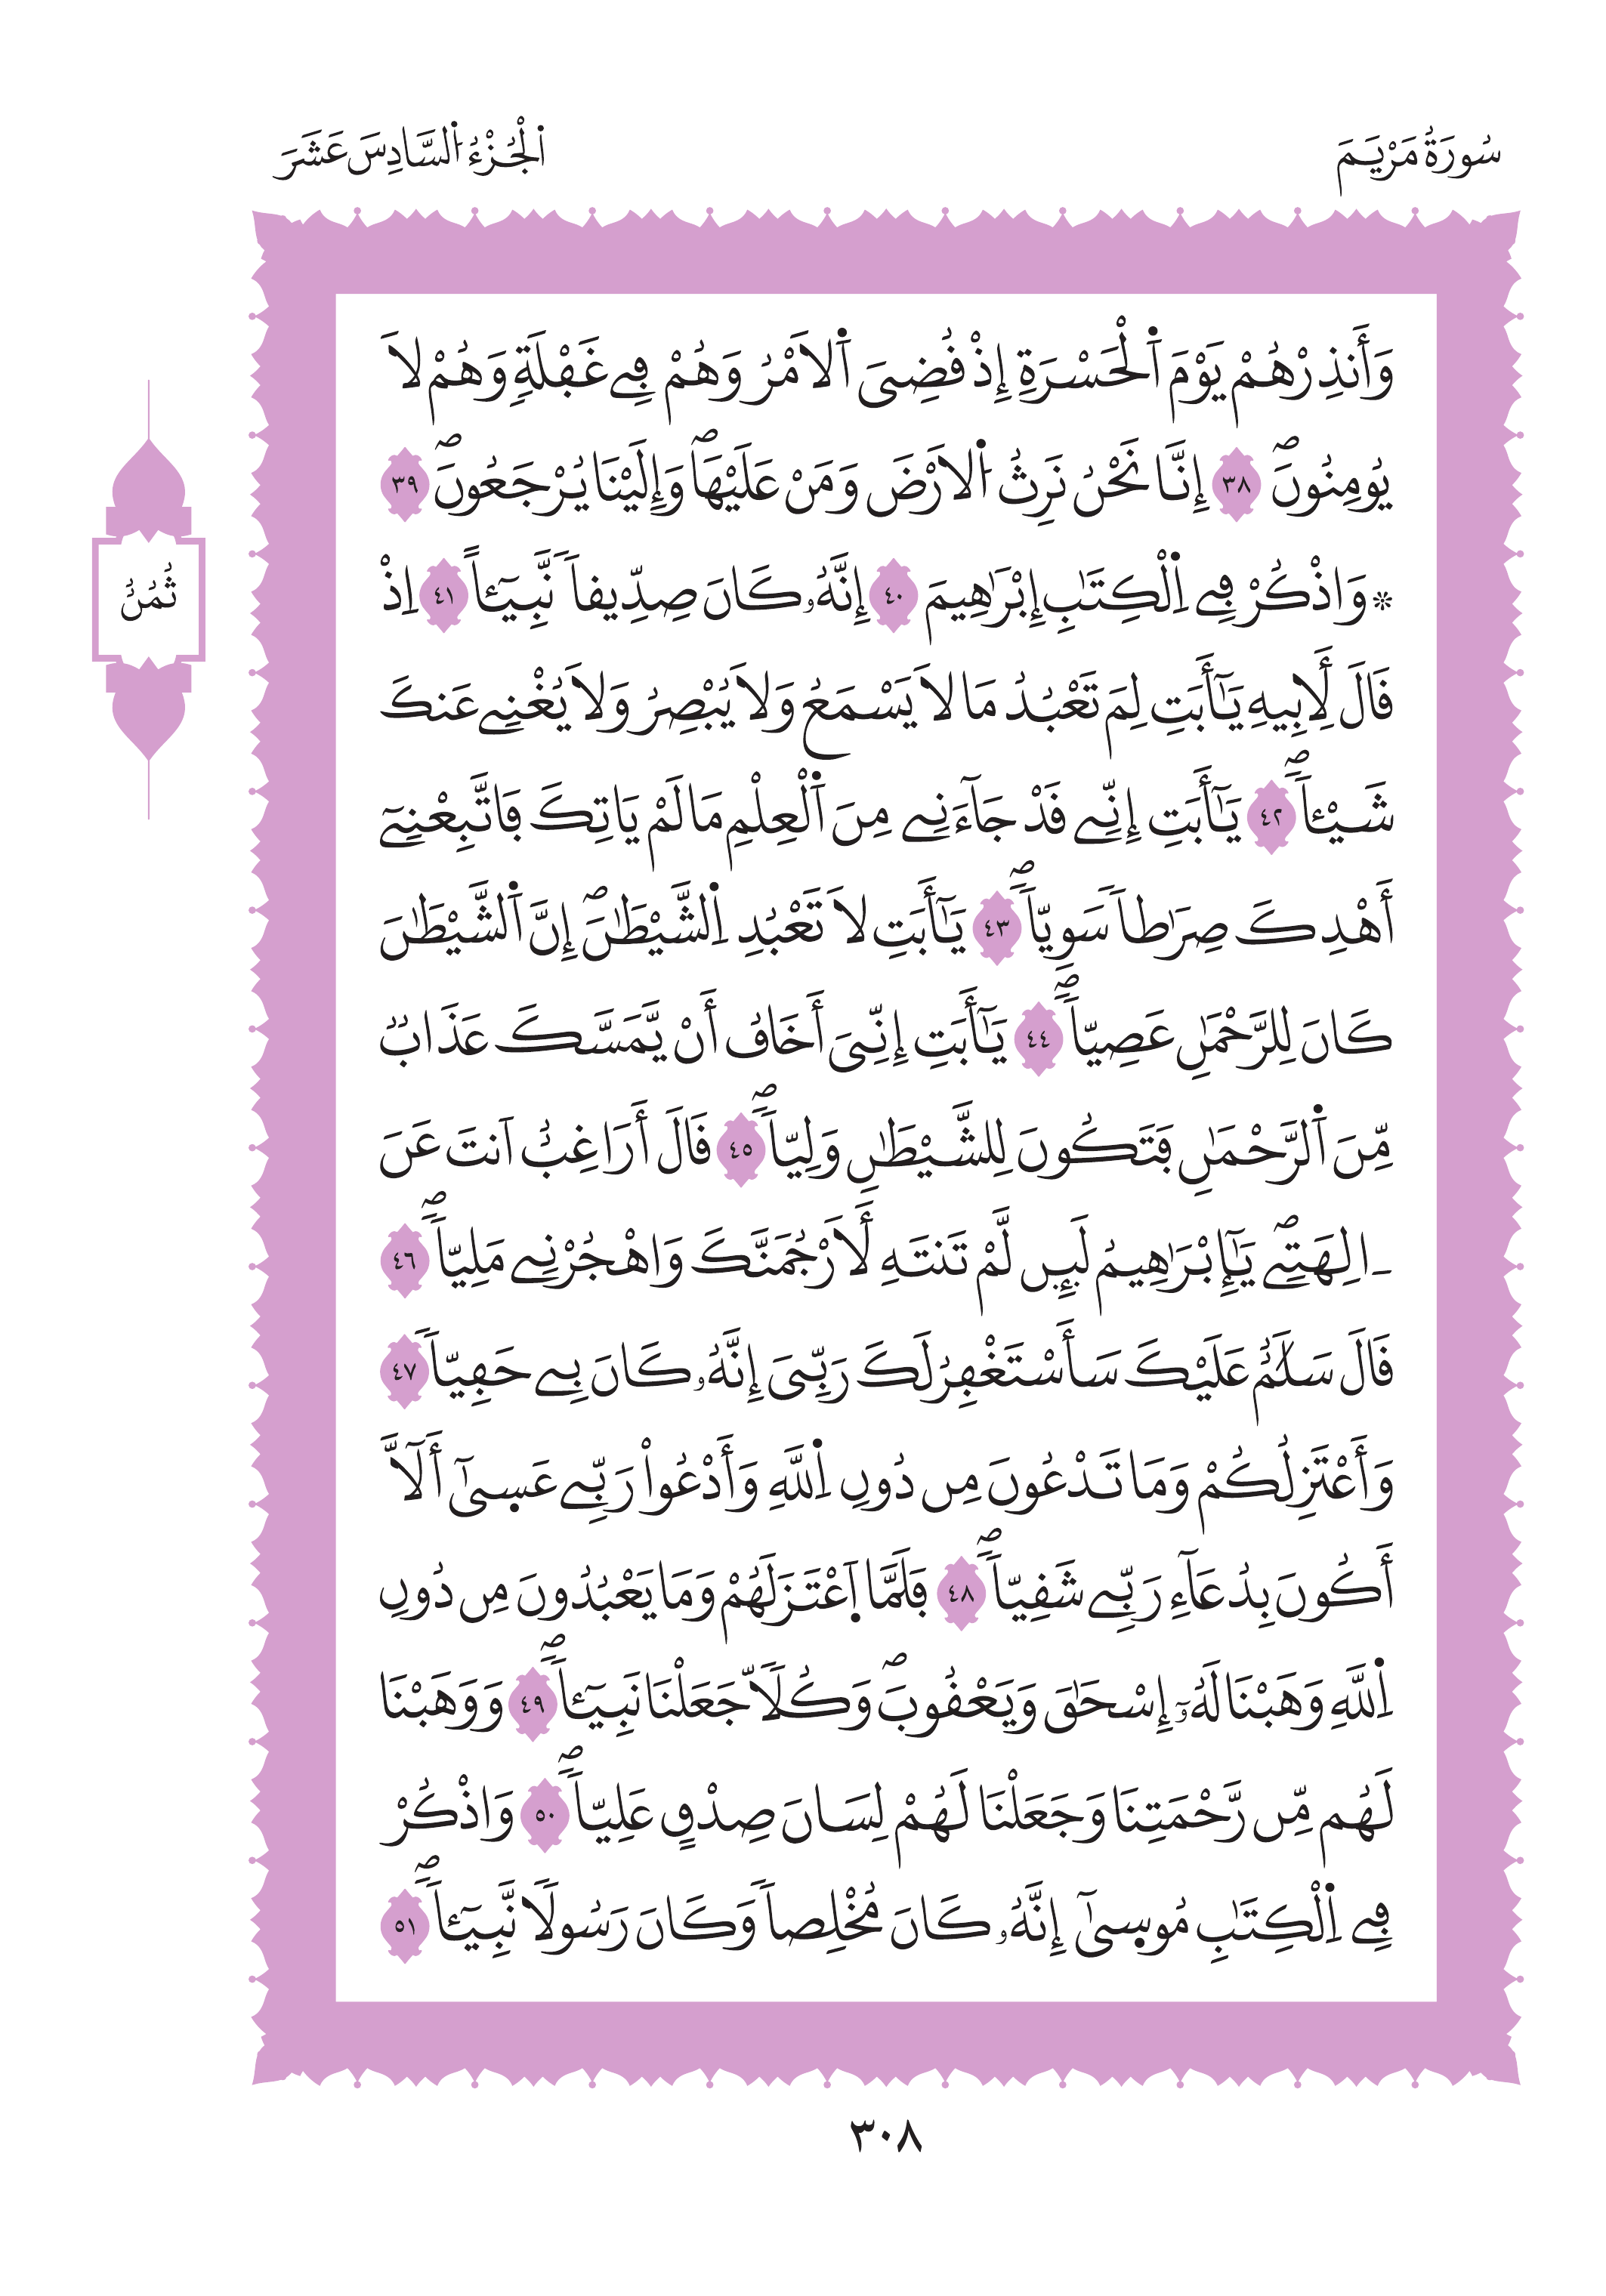 سُورَةُ مَرْيَمَ
اَ۬لْجُزْءُ اُ۬لسَّادِسَ عَشَرَ
وَأَنذِرْهُمْ يَوْمَ اَ۬لْحَسْرَةِ إِذْ قُضِيَ اَ۬لَامْرُ وَهُمْ فِے غَفْلَةٖ وَهُمْ لَا
يُومِنُونَۖ ٣٨ إِنَّا نَحْنُ نَرِثُ اُ۬لَارْضَ وَمَنْ عَلَيْهَاۖ وَإِلَيْنَا يُرْجَعُونَۖ ٣٩
۞ وَاذْكُرْ فِے اِ۬لْكِتَٰبِ إِبْرَٰهِيمَ ٤٠ إِنَّهُۥ كَانَ صِدِّيقاٗ نَّبِيٓـٔاً ٤١ اِذْ
قَالَ لِأَبِيهِ يَٰٓأَبَتِ لِمَ تَعْبُدُ مَا لَا يَسْمَعُ وَلَا يُبْصِرُ وَلَا يُغْنِے عَنكَ
شَيْـٔاٗۖ ٤٢ يَٰٓأَبَتِ إِنِّے قَدْ جَآءَنِے مِنَ اَ۬لْعِلْمِ مَا لَمْ يَاتِكَ فَاتَّبِعْنِےٓ
أَهْدِكَ صِرَٰطاٗ سَوِيّاٗۖ ٤٣ يَٰٓأَبَتِ لَا تَعْبُدِ اِ۬لشَّيْطَٰنَۖ إِنَّ اَ۬لشَّيْطَٰنَ
كَانَ لِلرَّحْمَٰنِ عَصِيّاٗۖ ٤٤ يَٰٓأَبَتِ إِنِّيَ أَخَافُ أَنْ يَّمَسَّكَ عَذَابٞ
مِّنَ اَ۬لرَّحْمَٰنِ فَتَكُونَ لِلشَّيْطَٰنِ وَلِيّاٗۖ ٤٥ قَالَ أَرَاغِبٌ اَنتَ عَنَ
ـ اٰلِهَتِےۖ يَٰٓإِبْرَٰهِيمُ لَئِن لَّمْ تَنتَهِ لَأَرْجُمَنَّكَ وَاهْجُرْنِے مَلِيّاٗۖ ٤٦
قَالَ سَلَٰمٌ عَلَيْكَ سَأَسْتَغْفِرُ لَكَ رَبِّيَ إِنَّهُۥ كَانَ بِے حَفِيّاٗ ٤٧
وَأَعْتَزِلُكُمْ وَمَا تَدْعُونَ مِن دُونِ اِ۬للَّهِ وَأَدْعُواْ رَبِّے عَس۪ىٰٓ أَلَّآ
أَكُونَ بِدُعَآءِ رَبِّے شَقِيّاٗۖ ٤٨ فَلَمَّا اَ۪عْتَزَلَهُمْ وَمَا يَعْبُدُونَ مِن دُونِ
اِ۬للَّهِ وَهَبْنَا لَهُۥٓ إِسْحَٰقَ وَيَعْقُوبَۖ وَكُلّاٗ جَعَلْنَا نَبِيٓـٔاٗۖ ٤٩ وَوَهَبْنَا
لَهُم مِّن رَّحْمَتِنَا وَجَعَلْنَا لَهُمْ لِسَانَ صِدْقٍ عَلِيّاٗۖ ٥٠ وَاذْكُرْ
فِے اِ۬لْكِتَٰبِ مُوس۪ىٰٓ إِنَّهُۥ كَانَ مُخْلِصاٗ وَكَانَ رَسُولاٗ نَّبِيٓـٔاٗۖ ٥١
ثُمُنُ
٣٠٨